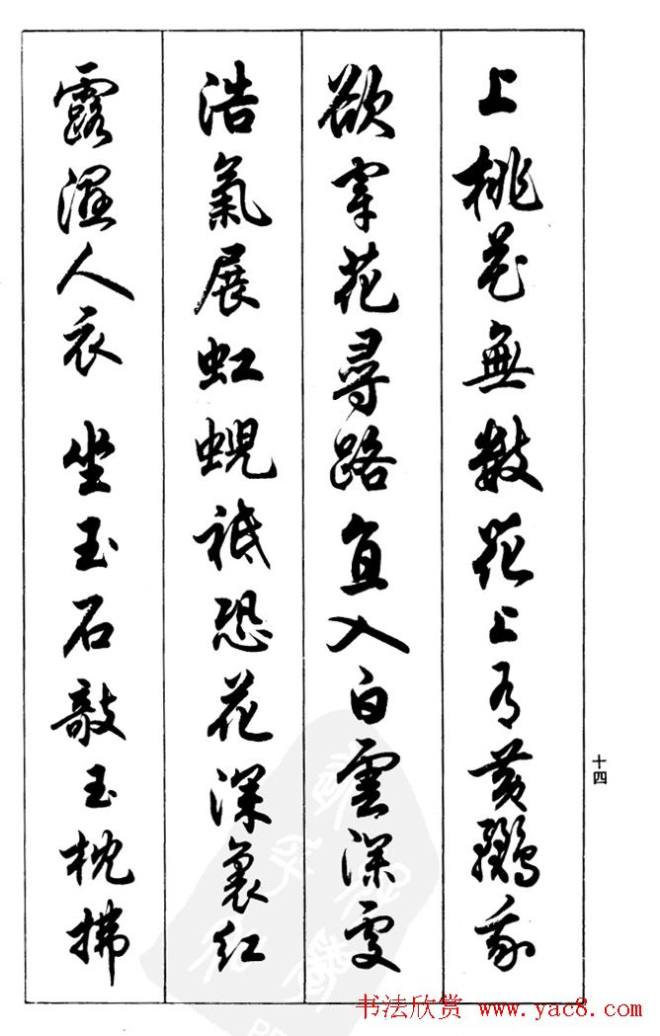 上桃花無數花上有黃鸝我
欲穿花尋路直入白雲深處
浩氣展虹蜺祗恐花深裏紅
露濕人衣 坐玉石敧玉枕拂
十四
书法欣赏 www.yac8.com